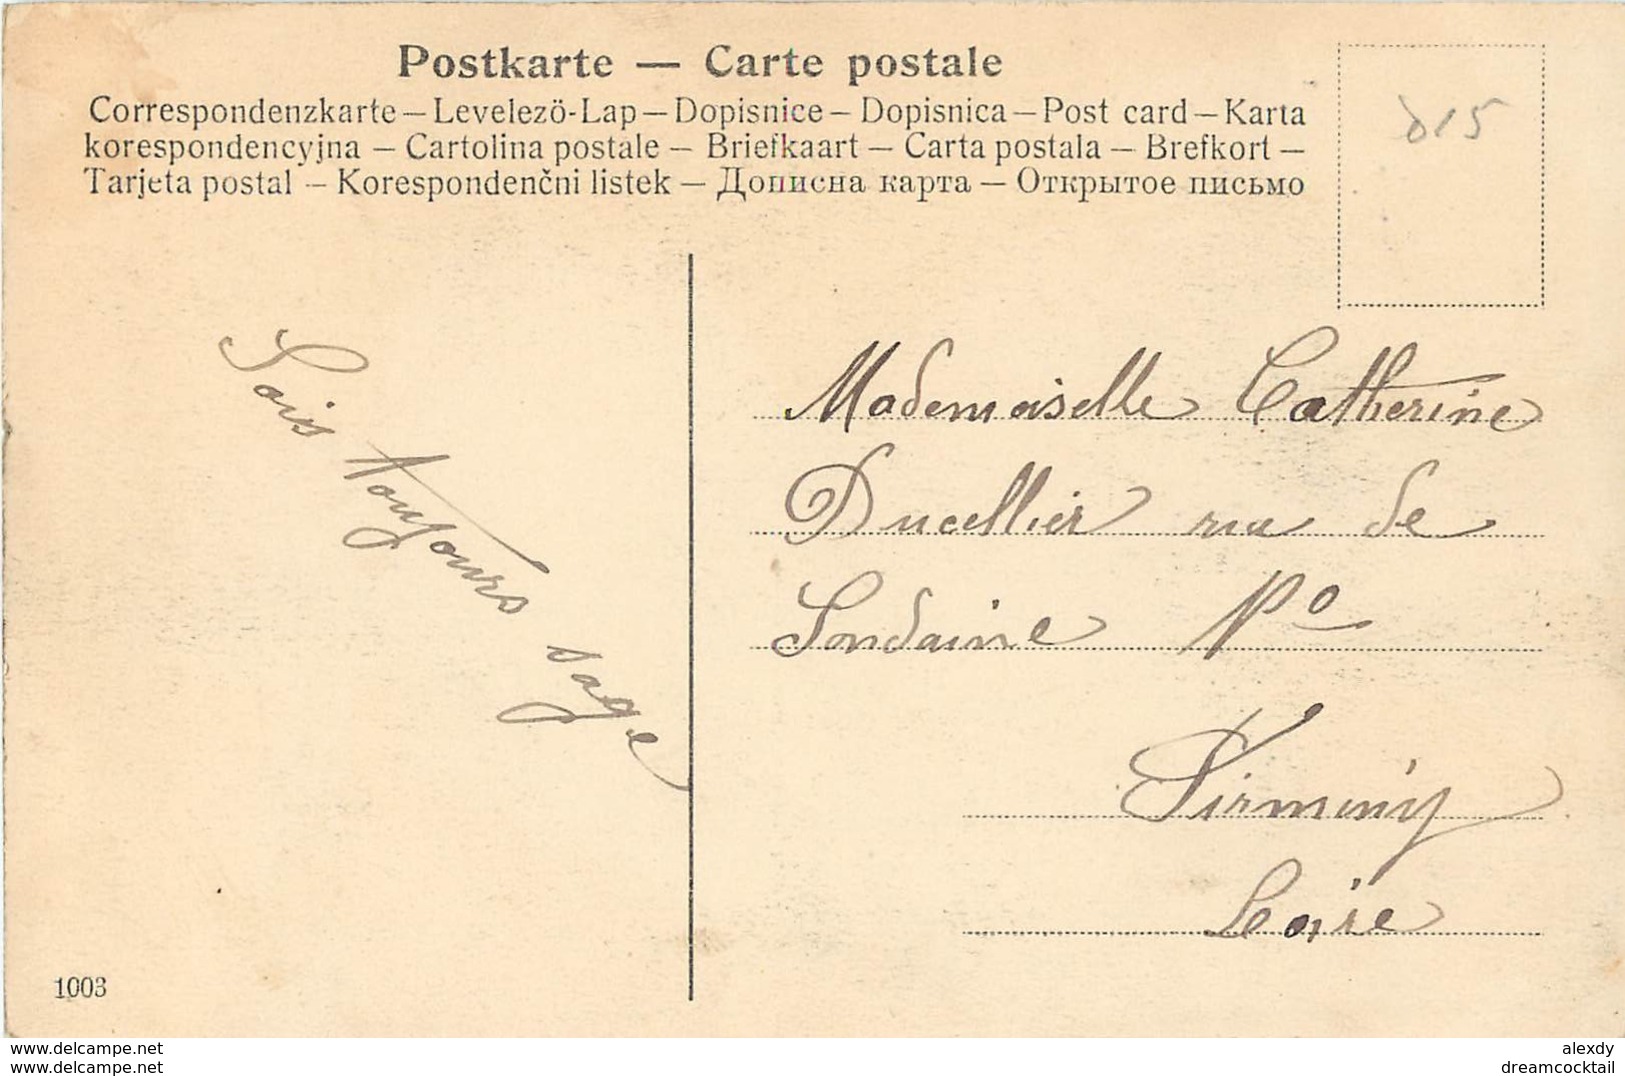 Postkarte — Carte postale
Correspondenzkarte — Levelezö-Lap — Dopisnice — Dopisnica — Post card — Karta
korespondencyjna — Cartolina postale — Briefkaart — Carta postala — Brefkort —
Tarjeta postal — Korespondenčni listek — Дописна карта — Открытое письмо
815
Sois toujours sage
Mademoiselle Catherine
Ducellier rue de
Sondaine No
Firminy
Loire
1003
www.delcampe.net
www.delcampe.net
alexdy
dreamcocktail